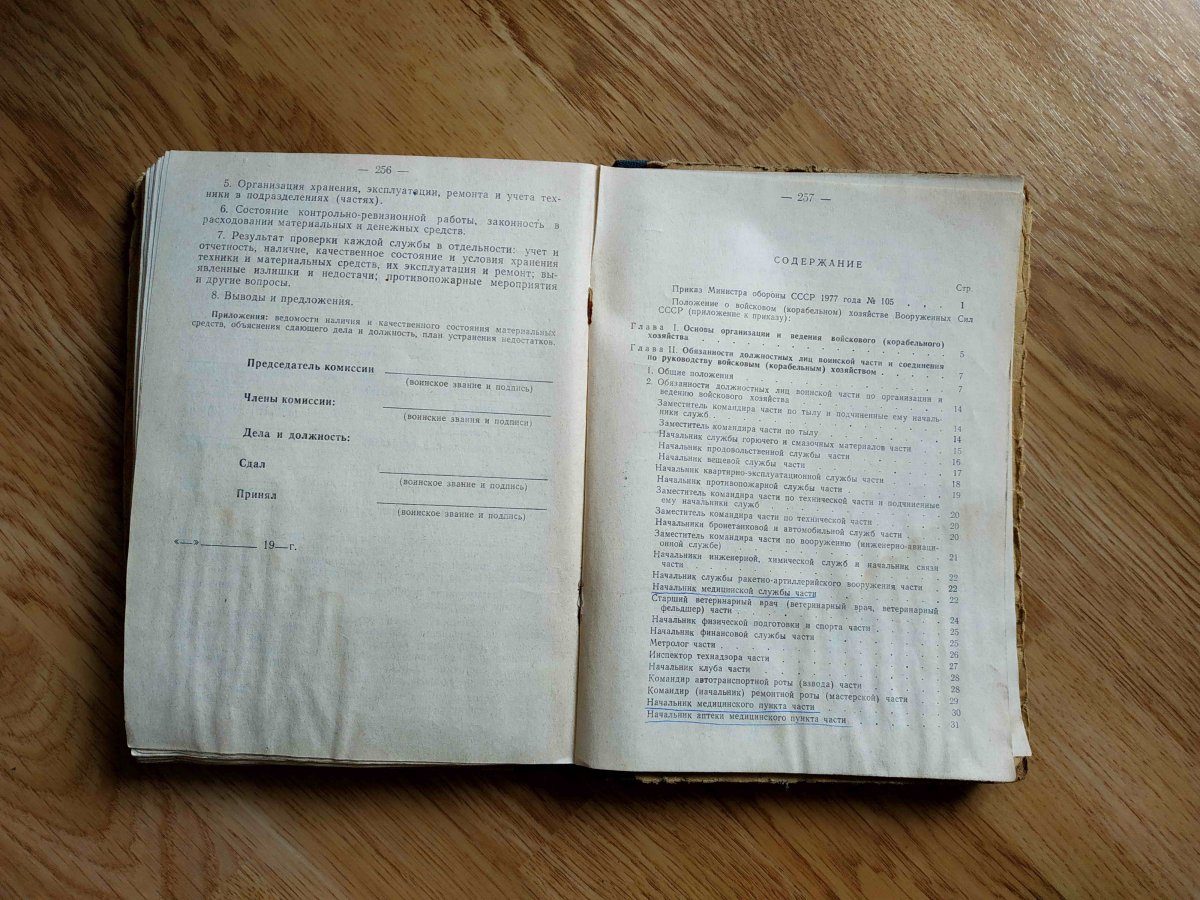 — 256 —
5. Организация хранения, эксплуатации, ремонта и учета тех-
ники в подразделениях (частях).
6. Состояние контрольно-ревизионной работы, законность в
расходовании материальных и денежных средств.
7. Результат проверки каждой службы в отдельности: учет и
отчетность, наличие, качественное состояние и условия хранения
техники и материальных средств, их эксплуатация и ремонт; вы-
явленные излишки и недостачи; противопожарные мероприятия
и другие вопросы.
8. Выводы и предложения.
Приложения: ведомости наличия и качественного состояния материальных
средств, объяснения сдающего дела и должность, план устранения недостатков.
Председатель комиссии
(воинское звание и подпись)
Члены комиссии:
(воинские звания и подписи)
Дела и должность:
Сдал
(воинское звание и подпись)
Принял
(воинское звание и подпись)
«—» 19—г.
— 257 —
СОДЕРЖАНИЕ
Стр.
Приказ Министра обороны СССР 1977 года № 105 . . . 1
Положение о войсковом (корабельном) хозяйстве Вооруженных Сил
СССР (приложение к приказу):
Глава I. Основы организации и ведения войскового (корабельного)
хозяйства 5
Глава II. Обязанности должностных лиц воинской части и соединения
по руководству войсковым (корабельным) хозяйством 7
1. Общие положения 7
2. Обязанности должностных лиц воинской части по организации и
ведению войскового хозяйства 14
Заместитель командира части по тылу и подчиненные ему началь-
ники служб 14
Заместитель командира части по тылу 14
Начальник службы горючего и смазочных материалов части 15
Начальник продовольственной службы части 16
Начальник вещевой службы части 17
Начальник квартирно-эксплуатационной службы части 18
Начальник противопожарной службы части 19
Заместитель командира части по технической части и подчиненные
ему начальники служб 20
Заместитель командира части по технической части 20
Начальники бронетанковой и автомобильной служб части 20
Заместитель командира части по вооружению (инженерно-авиаци-
онной службе) 21
Начальники инженерной, химической служб и начальник связи
части 22
Начальник службы ракетно-артиллерийского вооружения части 22
Начальник медицинской службы части 22
Старший ветеринарный врач (ветеринарный врач, ветеринарный
фельдшер) части 24
Начальник физической подготовки и спорта части 25
Начальник финансовой службы части 25
Метролог части 26
Инспектор технадзора части 27
Начальник клуба части 28
Командир автотранспортной роты (взвода) части 28
Командир (начальник) ремонтной роты (мастерской) части 29
Начальник медицинского пункта части 30
Начальник аптеки медицинского пункта части 31